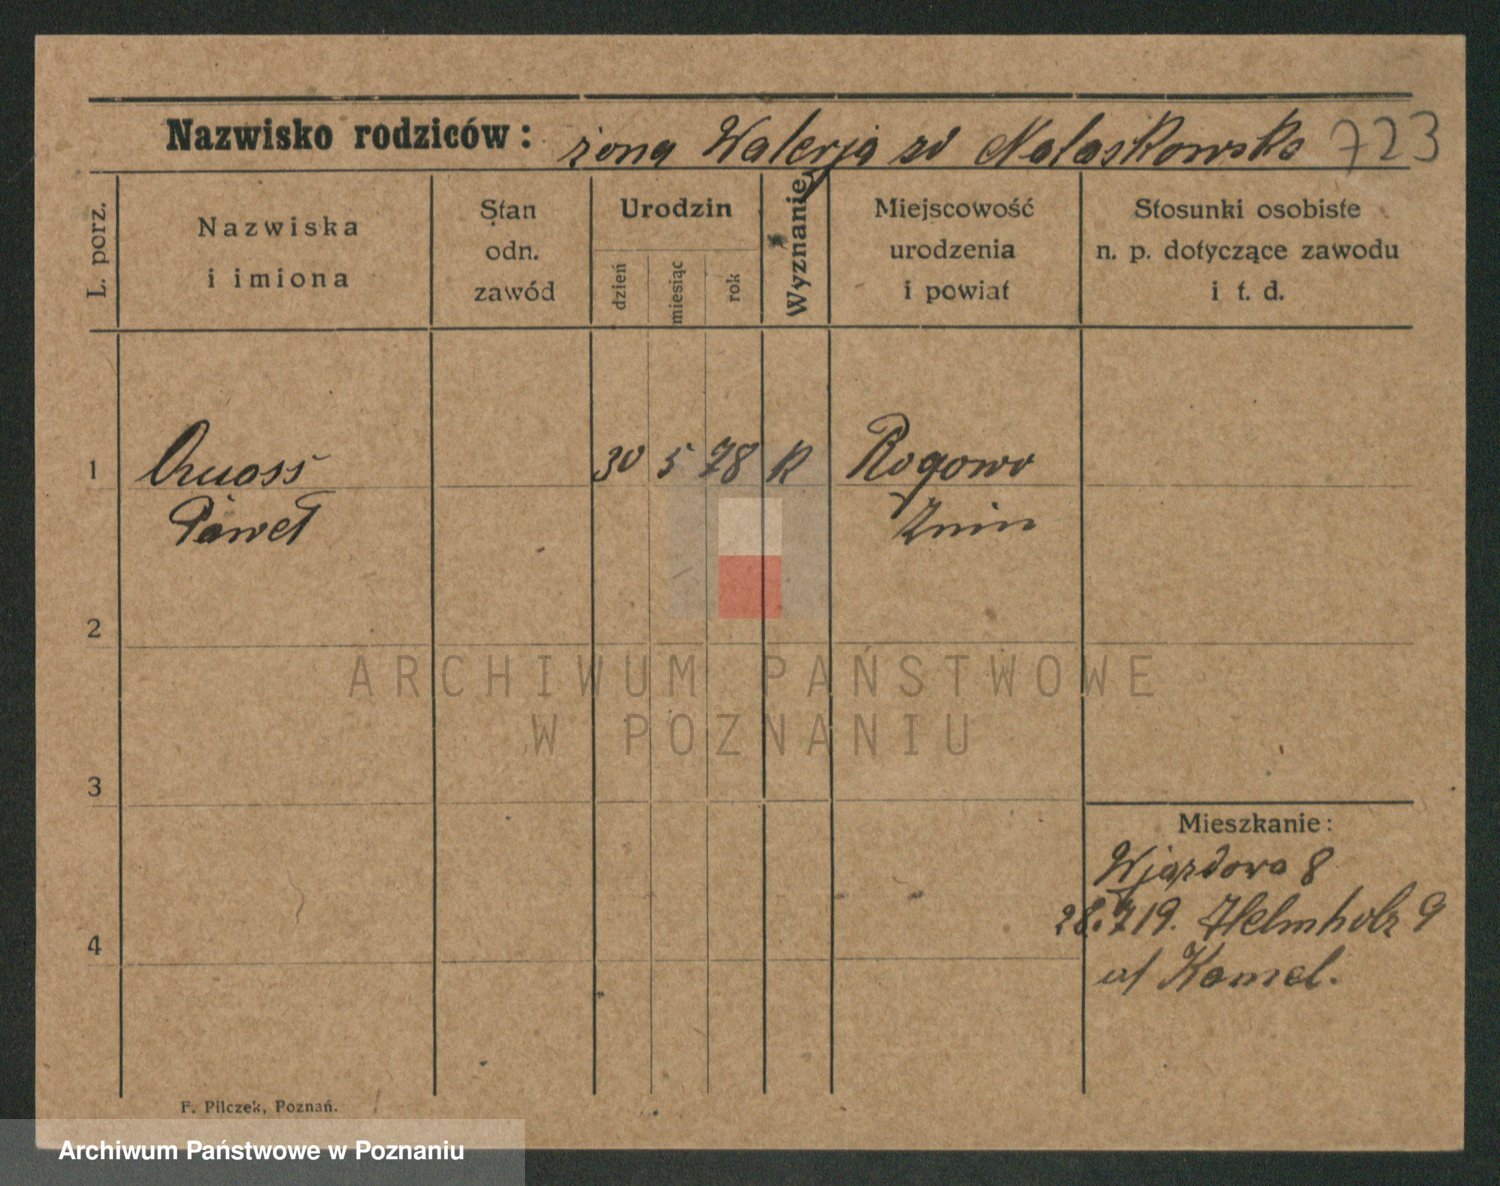 Nazwisko rodziców: żona Walerja zd Nataskowska 723
L. porz.
Nazwiska
i imiona
Stan
odn.
zawód
Urodzin
dzień
miesiąc
rok
Wyznanie
Miejscowość
urodzenia
i powiat
Stosunki osobiste
n. p. dotyczące zawodu
i t. d.
1 30 5 78 K Rogowo
Paweł Żnin
2
3
4
Mieszkanie:
Wjazdowa 8
28.719. Helmholz 9
u/ Kamel.
F. Pilczek, Poznań.
ARCHIWUM PAŃSTWOWE
W POZNANIU
Archiwum Państwowe w Poznaniu